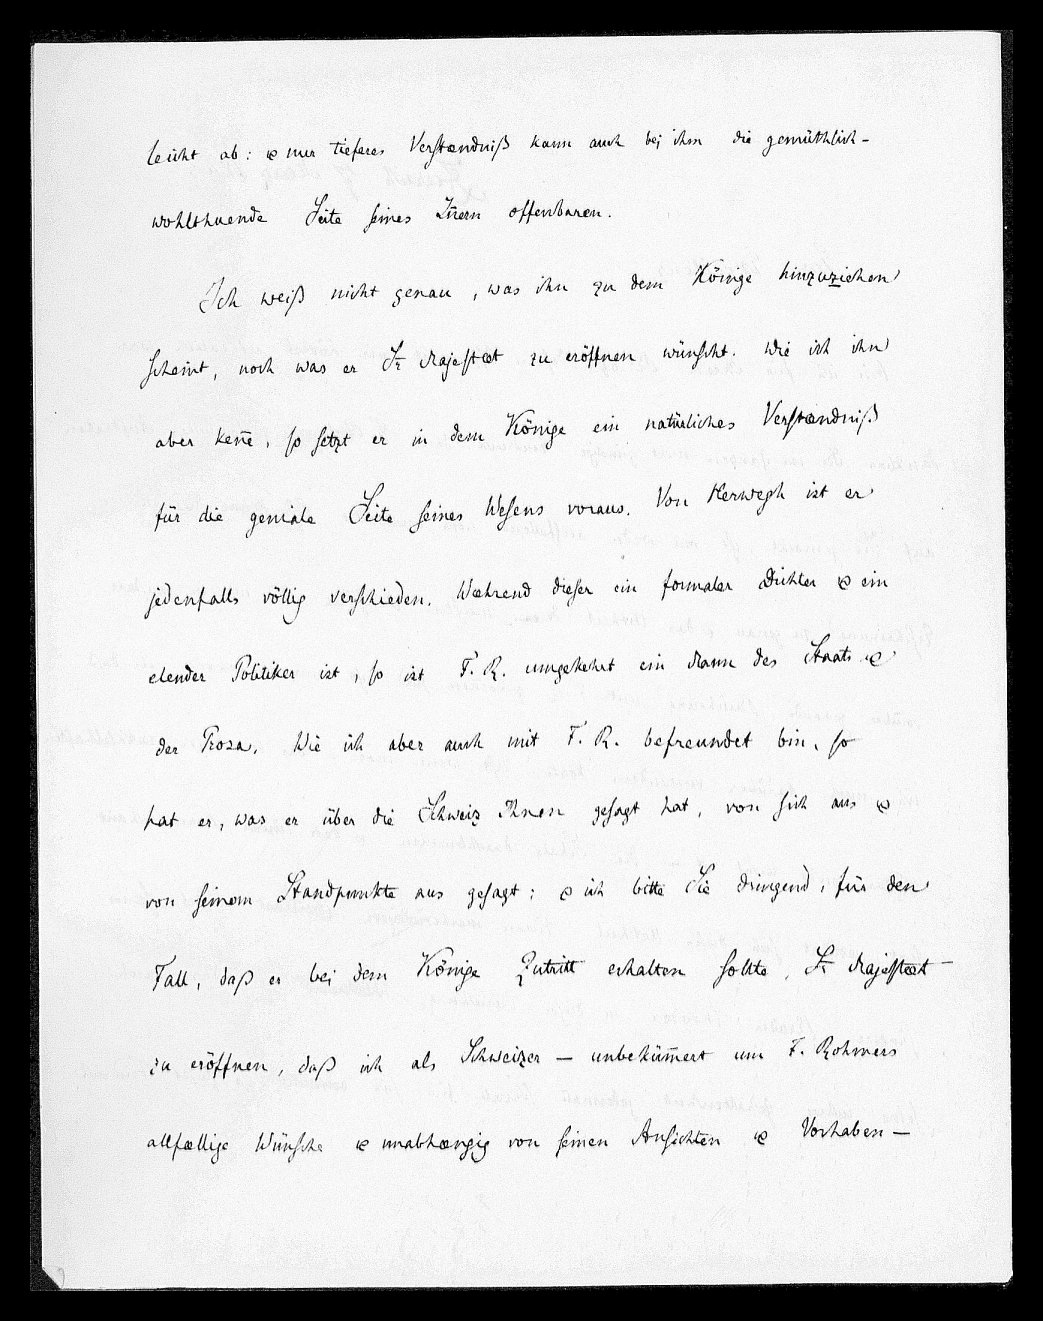 leicht ab: & nur tieferes Verstændniß kann auch bei ihm die gemüthlich-
wohlthuende Seite seines Iñern offenbaren.
Ich weiß nicht genau, was ihn zu dem Könige hinzuziehen
scheint, noch was er Sr Majestæt zu eröffnen wünscht. Wie ich ihn
aber keñe, so setzt er in dem Könige ein natürliches Verstændniß
für die geniale Seite seines Wesens voraus. Von Herwegh ist er
jedenfalls völlig verschieden. Während dieser ein formaler Dichter & ein
elender Politiker ist, so ist F. R. umgekehrt ein Mann des Staats &
der Prosa. Wie ich aber auch mit F. R. befreundet bin, so
hat er, was er über die Schweiz Ihnen gesagt hat, von sich aus &
von seinem Standpunkte aus gesagt; & ich bitte Sie dringend, für den
Fall, daß er bei dem Könige Zutritt erhalten sollte, Sr Majestæt
zu eröffnen, daß ich als Schweizer — unbeküm̃ert um F. Rohmers
allfællige Wünsche & unabhængig von seinen Ansichten & Vorhaben —